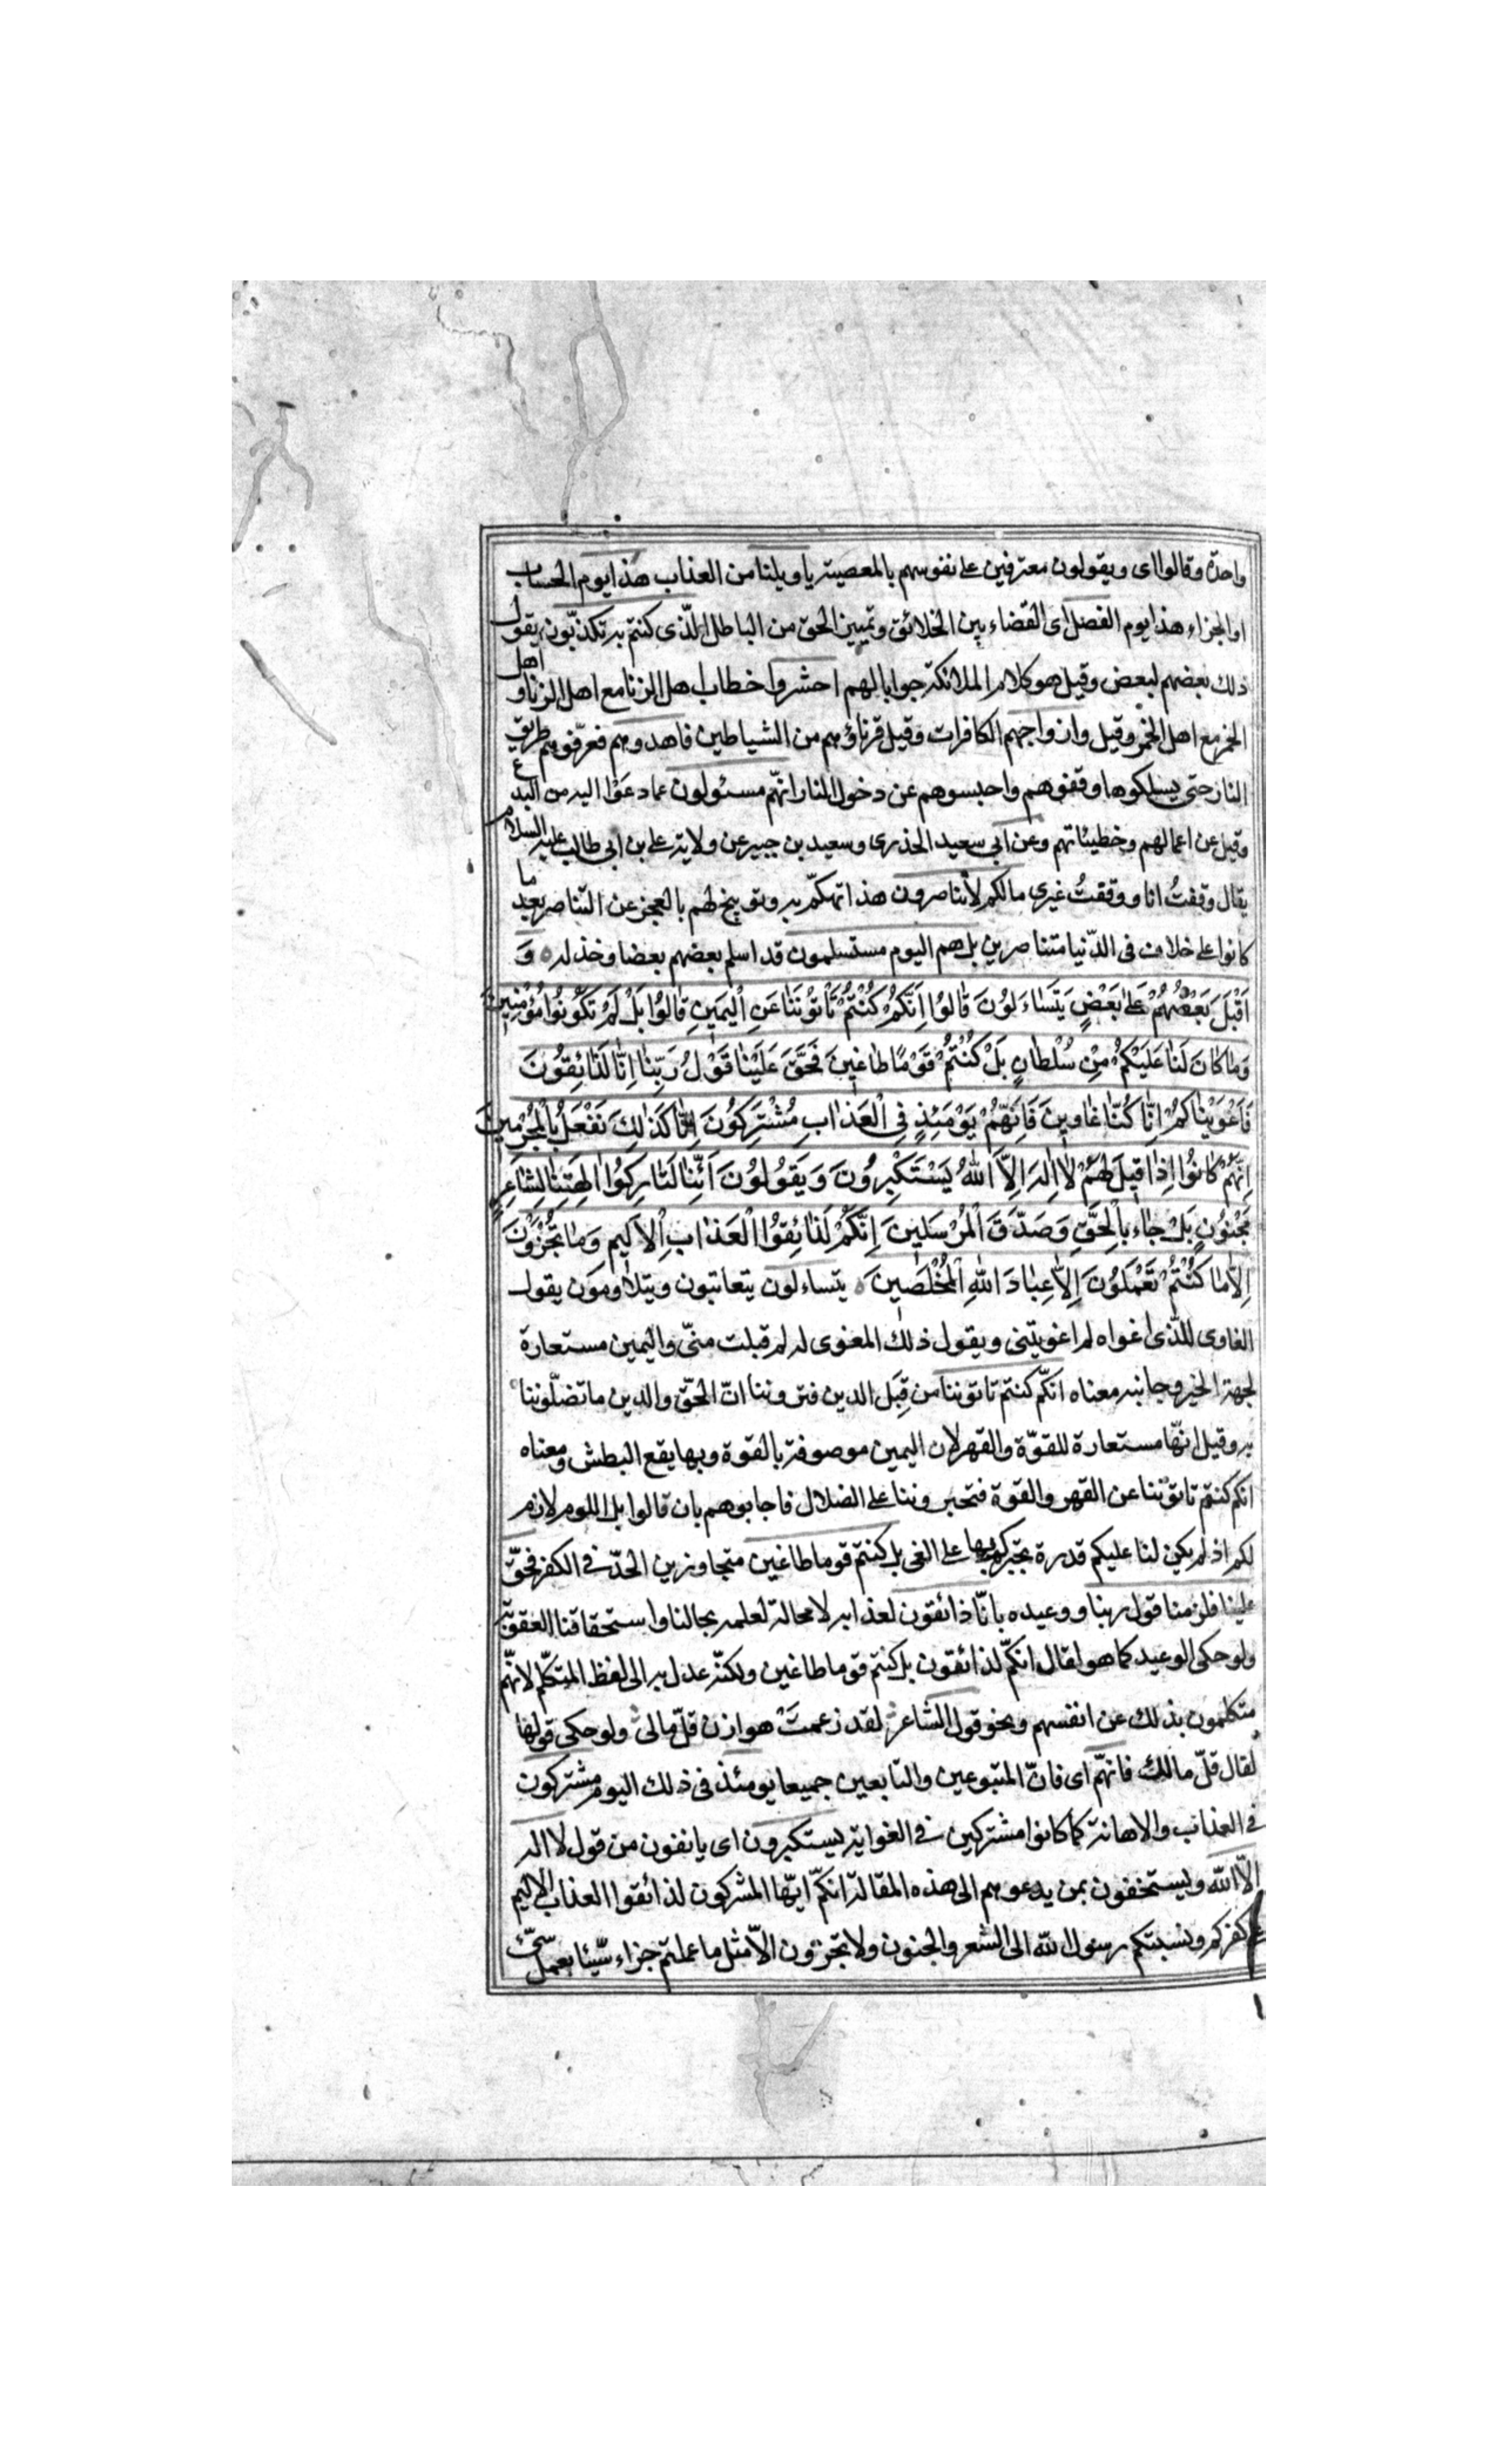 واحدة وقالوا اى ويقولون معترفين على نفوسهم بالمعصية يا ويلنا من العذاب هذا يوم الحساب
او الجزاء هذا يوم الفصل اى القضاء بين الخلائق وتمييز الحق من الباطل الّذى كنتم به تكذّبون يقول
ذلك بعضهم لبعض وقيل هو كلام الملائكة جوابا لهم احشروا خطاب اهل الزنا مع اهل الزنا و اهل
الخمر مع اهل الخمر وقيل وازواجهم الكافرات وقيل قرناؤهم من الشياطين فاهدوهم فعرّفوهم طريق
النار حتى يسلكوها وقفوهم واحبسوهم عن دخول النار انهّم مسئولون عما دعَوْا اليه من البدع
وقيل عن اعمالهم وخطيئاتهم وعن ابى سعيد الخذرى وسعيد بن جبير عن ولاية على بن ابى طالب عليه السلام
يقال وقفتُ انا ووقفتُ غيرى مالكم لا تناصرون هذا تهكّم به وتوبيخ لهم بالعجز عن التناصر بعد ما
كانوا على خلاف فى الدّنيا متناصرين بل هم اليوم مستسلمون قد اسلم بعضهم بعضا وخذله ٥ وَ
اَقْبَلَ بَعْضُهُمْ عَلىٰ بَعْضٍ يَتَسٰاءَلُونَ قٰالُوا اِنَّكُمْ كُنْتُمْ تَأْتُونَنٰا عَنِ الْيَمٖينِ قٰالُوا بَلْ لَمْ تَكُونُوا مُؤْمِنٖينَ
وَمٰا كٰانَ لَنٰا عَلَيْكُمْ مِنْ سُلْطٰانٍ بَلْ كُنْتُمْ قَوْمًا طٰاغٖينَ فَحَقَّ عَلَيْنٰا قَوْلُ رَبِّنٰا اِنّٰا لَذٰائِقُونَ
فَاَغْوَيْنٰاكُمْ اِنّٰا كُنّٰا غٰاوٖينَ فَاِنَّهُمْ يَوْمَئِذٍ فِى الْعَذٰابِ مُشْتَرِكُونَ اِنّٰا كَذٰلِكَ نَفْعَلُ بِالْمُجْرِمٖينَ
اِنَّهُمْ كٰانُوا اِذٰا قٖيلَ لَهُمْ لٰا اِلٰهَ اِلَّا اللّٰهُ يَسْتَكْبِرُونَ وَيَقُولُونَ اَئِنّٰا لَتٰارِكُوا اٰلِهَتِنٰا لِشٰاعِرٍ
مَجْنُونٍ بَلْ جٰاءَ بِالْحَقِّ وَصَدَّقَ الْمُرْسَلٖينَ اِنَّكُمْ لَذٰائِقُوا الْعَذٰابِ الْاَلٖيمِ وَمٰا تُجْزَوْنَ
اِلّٰا مٰا كُنْتُمْ تَعْمَلُونَ اِلّٰا عِبٰادَ اللّٰهِ الْمُخْلَصٖينَ ٥ يتساءلون يتعاتبون ويتلاومون يقول
الغاوى للّذى اغواه لم اغويتنى ويقول ذلك المغوى له لم قبلت منّى واليمين مستعارة
لجهة الخير وجانبه معناه انكّم كنتم تاتوننا من قِبَل الدين فترونا انّ الحقّ والدين ما تضلّوننا
به وقيل انهّا مستعارة للقوّة والقهر لان اليمين موصوفة بالقوة وبها يقع البطش ومعناه
انكم كنتم تاتوننا عن القهر والقوة فتجبروننا على الضلال فاجابوهم بان قالوا بل اللوم لازم
لكم اذ لم يكن لنا عليكم قدرة نجبركم بها على الغى بل كنتم قوما طاغين متجاوزين الحدّ فى الكفر فحقّ
علينا فلزمنا قول ربنا ووعيده بانّا ذائقون لعذابه لا محالة لعلمه بحالنا واستحقاقنا العقوبة
ولو حكى الوعيد كما هو لقال انكّم لذائقون بل كنتم قوما طاغين ولكنّه عدل به الى لفظ المتكلّم لانهّم
متكلمون بذلك عن انفسهم ونحو قول الشاعر لقد زعمتْ هوازن قلّ مالى ولو حكى قولها
لقال قلّ مالك فانهّم اى فانّ المتبوعين والتابعين جميعا يومئذ فى ذلك اليوم مشتركون
فى العذاب والاهانة كما كانوا مشتركين فى الغواية يستكبرون اى يانفون من قول لا اله
الّا الله ويستخفون بمن يدعوهم الى هذه المقالة انكّم ايّها المشركون لذائقوا العذاب الاليم
على كفركم ونسبتكم رسول الله الى الشعر والجنون ولا تجزون الّا مثل ما عملتم جزاء سيّئا بعمل سيّئ